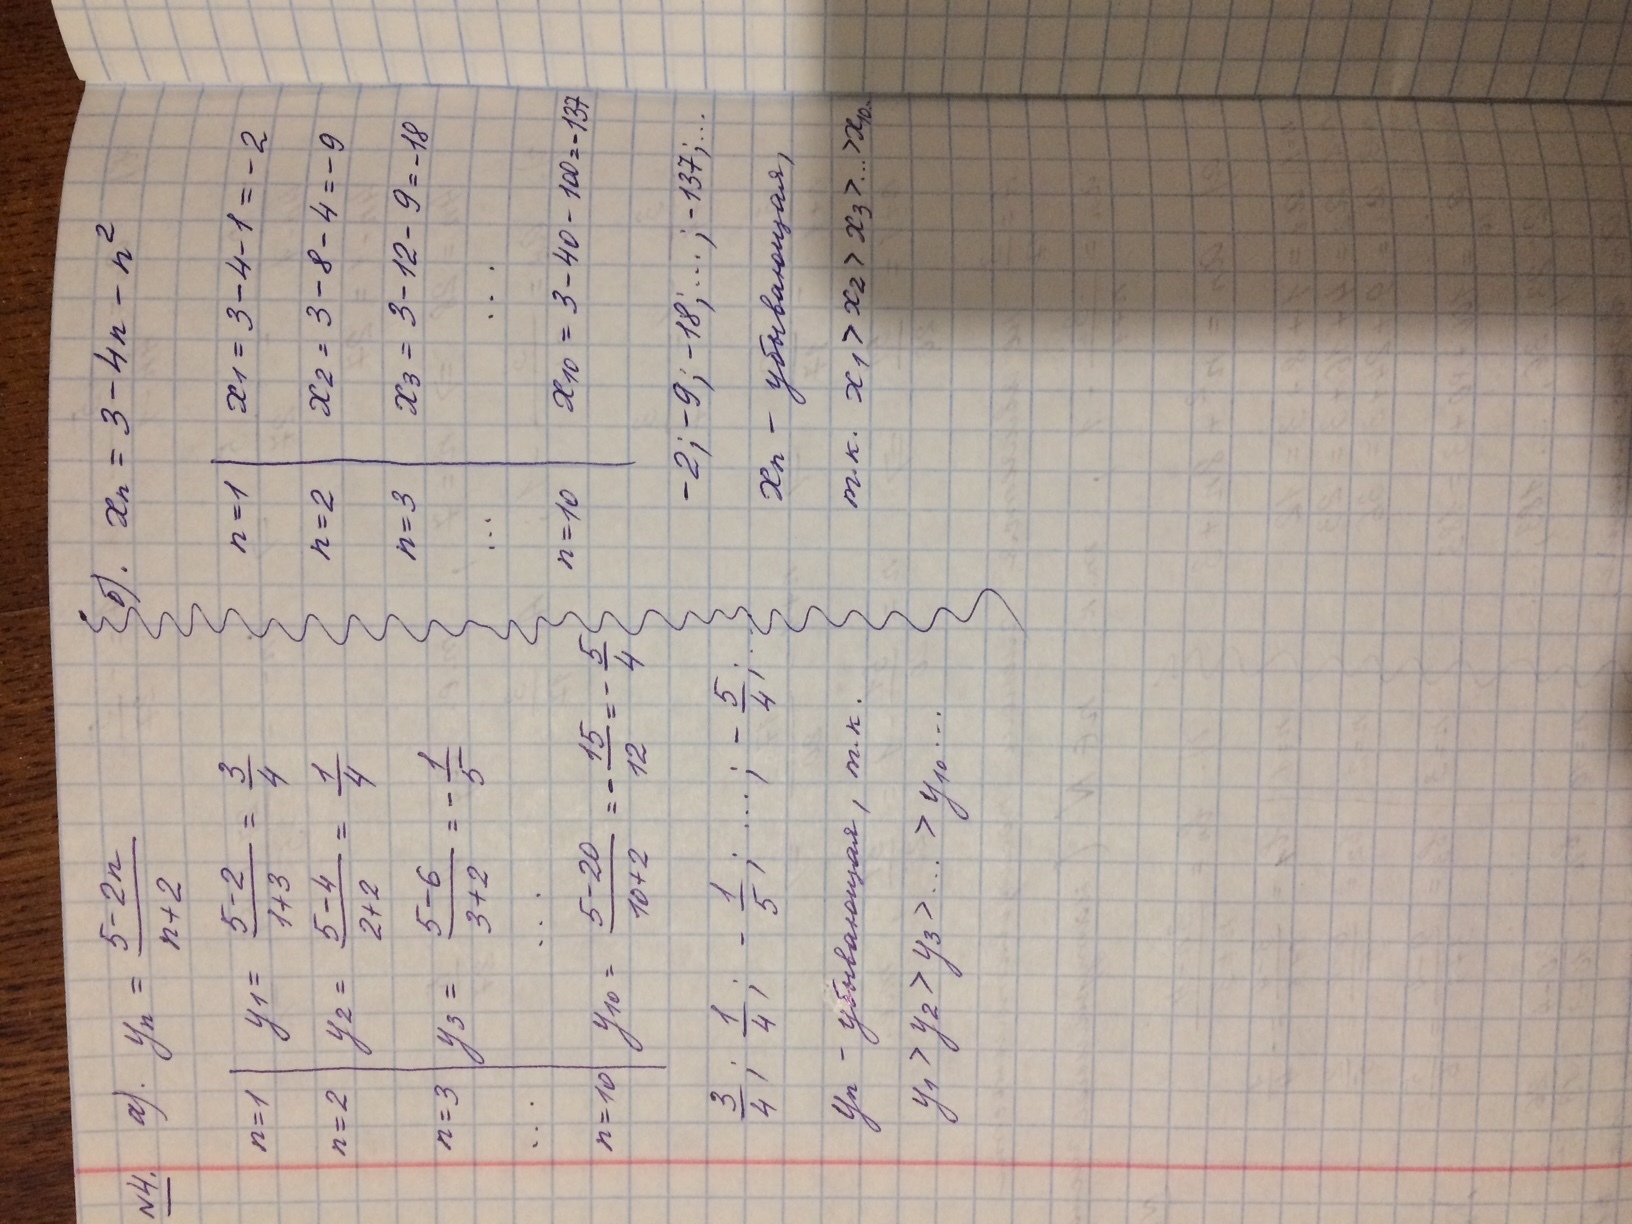 №4.
а). yₙ = (5-2n)/(n+2)
n=1 | y₁ = (5-2)/(1+3) = 3/4
n=2 | y₂ = (5-4)/(2+2) = 1/4
n=3 | y₃ = (5-6)/(3+2) = -1/5
... ...
n=10 | y₁₀ = (5-20)/(10+2) = -15/12 = -5/4
3/4; 1/4; -1/5; ...; -5/4; ...
yₙ - убывающая, т.к.
y₁ > y₂ > y₃ > ... > y₁₀...
б). xₙ = 3 - 4n - n²
n=1 | x₁ = 3-4-1 = -2
n=2 | x₂ = 3-8-4 = -9
n=3 | x₃ = 3-12-9 = -18
... ...
n=10 | x₁₀ = 3-40-100 = -137
-2; -9; -18; ...; -137; ...
xₙ - убывающая,
т.к. x₁ > x₂ > x₃ > ... > x₁₀...